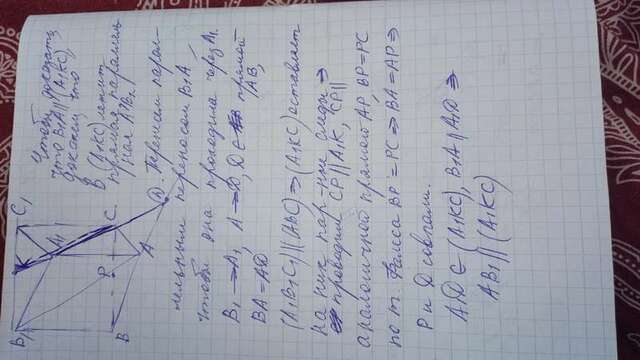 Чтобы доказать,
что B₁A || (A₁KC),
докажем что
в (A₁KC) лежит
прямая параллель
ная A₁B₁
Перенесем парал-
лельным переносом B₁A
чтобы она проходила через A₁
B₁ → A₁, A → D, D ∈ прямой AB,
BA = AD
(A₁B₁C₁) || (ABC) ⇒ (A₁KC) оставляет
на них пар-ые следы ⇒
проводим CP || A₁K, CP ||
аналогичной прямой AP BP = PC
по т. Фалеса BP = PC ⇒ BA = AP ⇒
P и D совпали.
A₁D ∈ (A₁KC), B₁A || A₁D ⇒
AB₁ || (A₁KC)
B₁ K C₁
A₁
P C
B A D